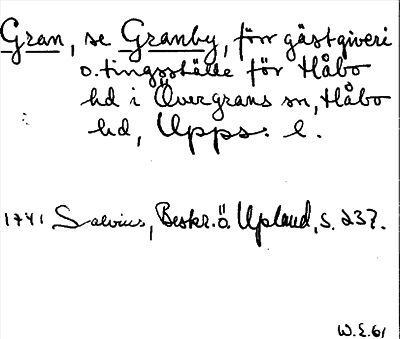 Gran, se Granby, förr gästgiveri
o. tingsställe för Håbo
hd i Övergrans sn, Håbo
hd, Upps. l.
1741 Salvius, Beskr. ö. Upland, S. 237.
W.E.61